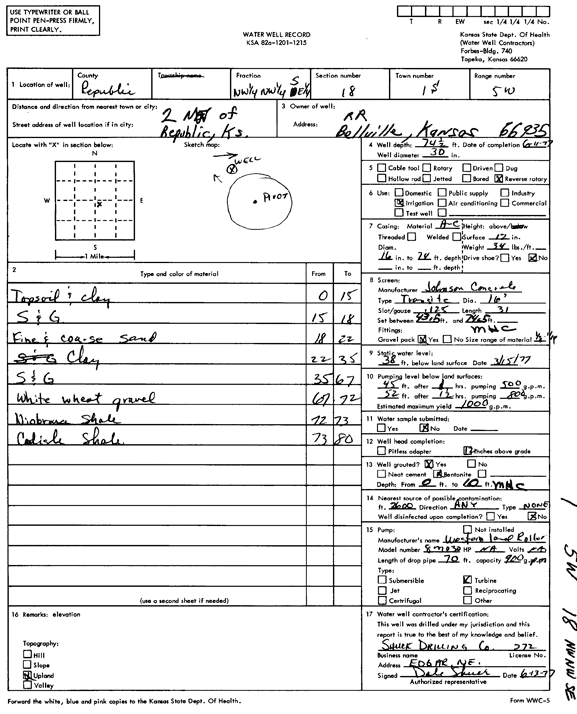 USE TYPEWRITER OR BALL
POINT PEN-PRESS FIRMLY,
PRINT CLEARLY.
WATER WELL RECORD
KSA 82a-1201-1215
T R EW sec 1/4 1/4 1/4 No.
Kansas State Dept. Of Health
(Water Well Contractors)
Forbes-Bldg. 740
Topeka, Kansas 66620
1 Location of well: County Republic Township name Fraction NW¼ NW¼ SE¼ Section number 18 Town number 1 S Range number 5 W
Distance and direction from nearest town or city: 2 N of
Street address of well location if in city: Republic, Ks.
3 Owner of well: RR
Address: Bellville, Kansas 66935
Locate with "X" in section below: Sketch map:
N
W X E
S
1 Mile
WELL
PIVOT
4 Well depth: 74½ ft. Date of completion 6-11-77
Well diameter 30 in.
5 Cable tool Rotary Driven Dug
Hollow rod Jetted Bored X Reverse rotary
6 Use: Domestic Public supply Industry
X Irrigation Air conditioning Commercial
Test well
7 Casing: Material A-C Height: above/below
Threaded Welded Surface 12 in.
Diam. Weight 34 lbs./ft.
16 in. to 74 ft. depth Drive shoe? Yes X No
in. to ft. depth
2 Type and color of material From To
Topsoil & clay 0 15
S & G 15 18
Fine & coarse sand 18 22
S & G Clay 22 35
S & G 35 67
White wheat gravel 67 72
Niobrara Shale 72 73
Carlisle Shale 73 80
(use a second sheet if needed)
8 Screen:
Manufacturer Johnson Concrete
Type Transite Dia. 16"
Slot/gauze .125 Length 31
Set between 43.5 ft. and 74.5 ft.
Fittings: MWC
Gravel pack X Yes No Size range of material
9 Static water level:
38 ft. below land surface Date 3/15/77
10 Pumping level below land surfaces:
45 ft. after hrs. pumping 500 g.p.m.
52 ft. after 12 hrs. pumping 800 g.p.m.
Estimated maximum yield 1000 g.p.m.
11 Water sample submitted:
Yes X No Date
12 Well head completion:
Pitless adapter 12 Inches above grade
13 Well grouted? X Yes No
Neat cement X Bentonite
Depth: From 0 ft. to 10 ft. MWC
14 Nearest source of possible contamination:
ft. 2600 Direction ANY Type NONE
Well disinfected upon completion? Yes X No
15 Pump: Not installed
Manufacturer's name Western Land Roller
Model number HP NA Volts NA
Length of drop pipe 70 ft. capacity 900 g.p.m
Type:
Submersible X Turbine
Jet Reciprocating
Centrifugal Other
16 Remarks: elevation
Topography:
Hill
Slope
X Upland
Valley
17 Water well contractor's certification:
This well was drilled under my jurisdiction and this
report is true to the best of my knowledge and belief.
SHUCK DRILLING Co. 272
Business name License No.
Address EDGAR, NE.
Signed Dale Shuck Date 6-13-77
Authorized representative
Forward the white, blue and pink copies to the Kansas State Dept. Of Health.
Form WWC-5
1 5W 18 NW NW SE